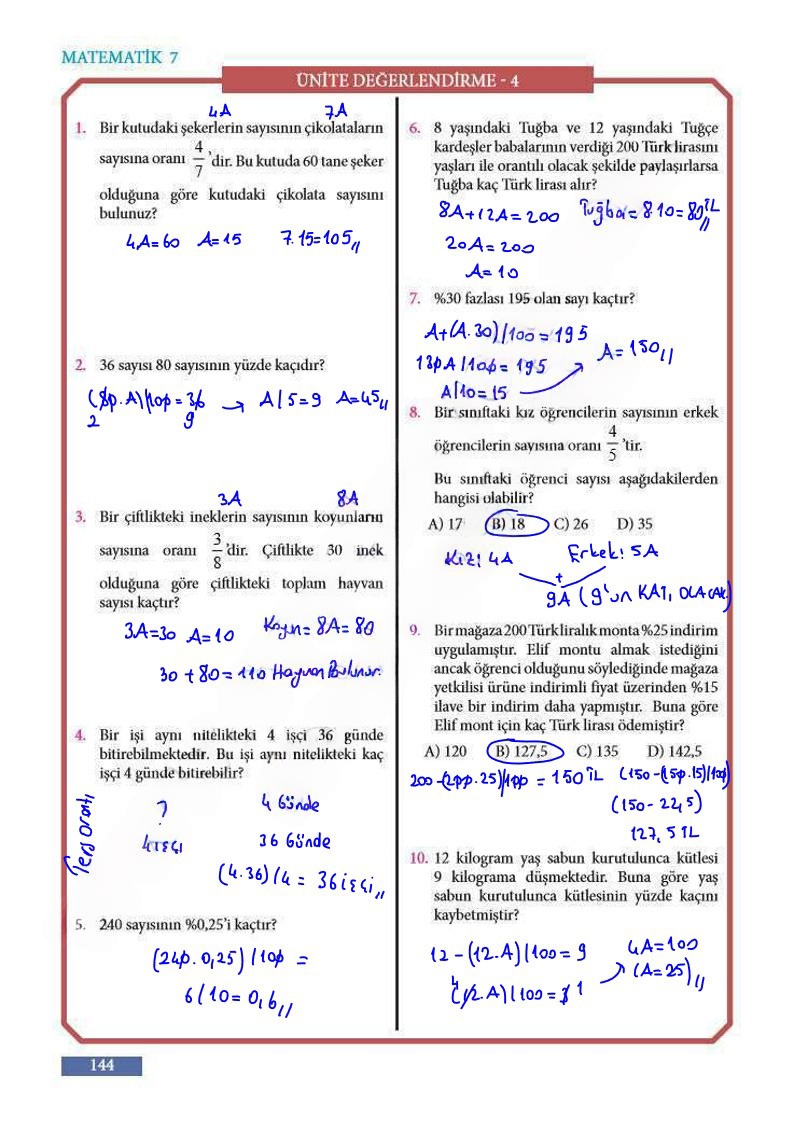 MATEMATİK 7
ÜNİTE DEĞERLENDİRME - 4
4A 7A
1. Bir kutudaki şekerlerin sayısının çikolataların
sayısına oranı 4/7 'dir. Bu kutuda 60 tane şeker
olduğuna göre kutudaki çikolata sayısını
bulunuz?
4A=60 A=15 7.15=105//
2. 36 sayısı 80 sayısının yüzde kaçıdır?
(80.A)/100=36 → A/5=9 A=45//
2 9
3A 8A
3. Bir çiftlikteki ineklerin sayısının koyunların
sayısına oranı 3/8 'dir. Çiftlikte 30 inek
olduğuna göre çiftlikteki toplam hayvan
sayısı kaçtır?
3A=30 A=10 Koyun=8A=80
30+80=110 Hayvan Bulunur.
4. Bir işi aynı nitelikteki 4 işçi 36 günde
bitirebilmektedir. Bu işi aynı nitelikteki kaç
işçi 4 günde bitirebilir?
Ters orantı
? 4 Günde
4 İŞÇİ 36 Günde
(4.36)/4=36 işçi//
5. 240 sayısının %0,25'i kaçtır?
(240.0,25)/100=
6/10=0,6//
6. 8 yaşındaki Tuğba ve 12 yaşındaki Tuğçe
kardeşler babalarının verdiği 200 Türk lirasını
yaşları ile orantılı olacak şekilde paylaşırlarsa
Tuğba kaç Türk lirası alır?
8A+12A=200 Tuğba=8.10=80TL//
20A=200
A=10
7. %30 fazlası 195 olan sayı kaçtır?
A+(A.30)/100=195
130A/100=195 A=150//
A/10=15
8. Bir sınıftaki kız öğrencilerin sayısının erkek
öğrencilerin sayısına oranı 4/5 'tir.
Bu sınıftaki öğrenci sayısı aşağıdakilerden
hangisi olabilir?
A) 17 B) 18 C) 26 D) 35
Kız: 4A Erkek: 5A
+
9A (9'un KATI OLACAK)
9. Bir mağaza 200 Türk liralık monta %25 indirim
uygulamıştır. Elif montu almak istediğini
ancak öğrenci olduğunu söylediğinde mağaza
yetkilisi ürüne indirimli fiyat üzerinden %15
ilave bir indirim daha yapmıştır. Buna göre
Elif mont için kaç Türk lirası ödemiştir?
A) 120 B) 127,5 C) 135 D) 142,5
200-(200.25)/100=150TL (150-(150.15)/100)
(150-22,5)
127,5TL
10. 12 kilogram yaş sabun kurutulunca kütlesi
9 kilograma düşmektedir. Buna göre yaş
sabun kurutulunca kütlesinin yüzde kaçını
kaybetmiştir?
12-(12.A)/100=9 4A=100
4 (12.A)/100=3 1 → (A=25)//
144